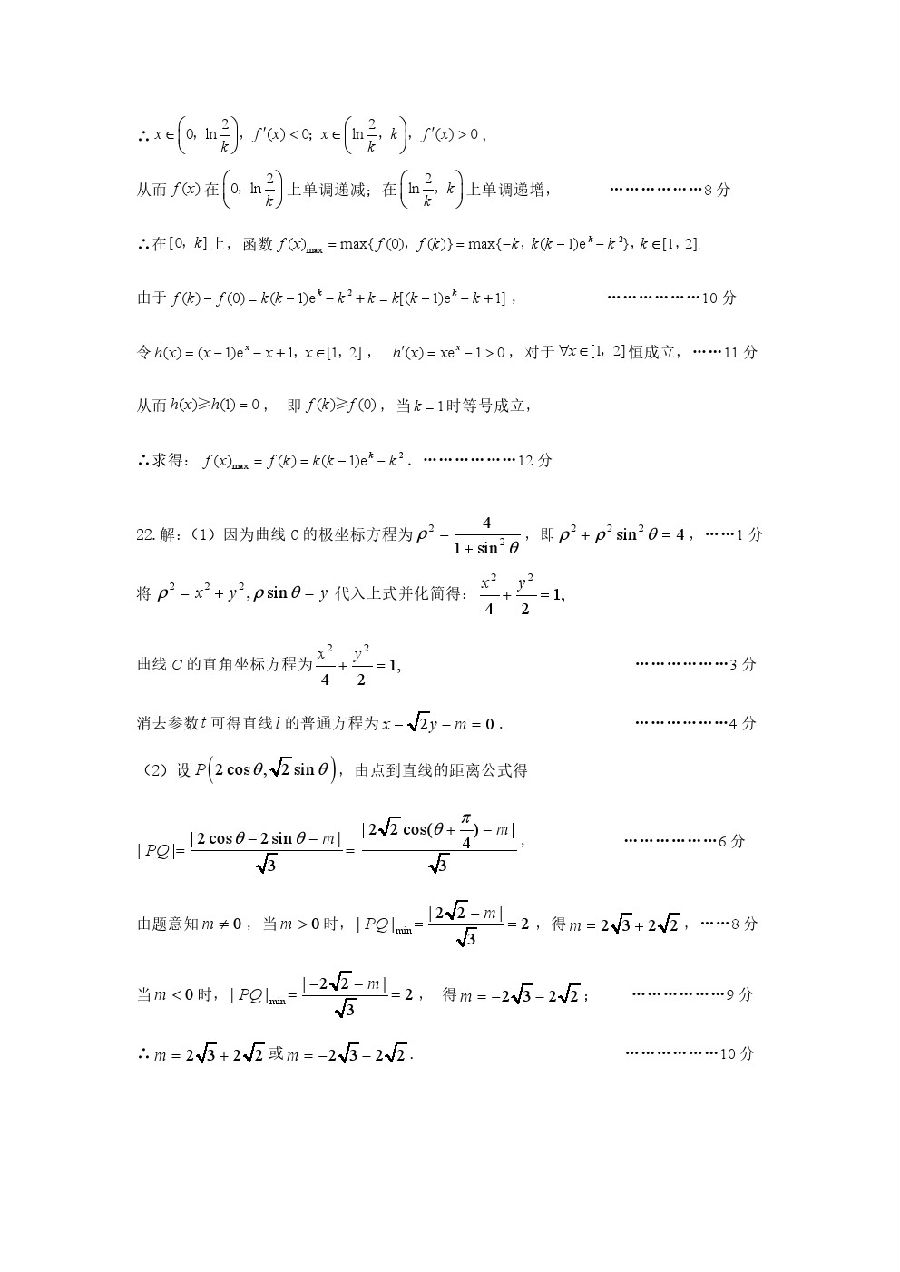 ∴ x∈(0, ln 2/k), f′(x)<0; x∈(ln 2/k, k), f′(x)>0.
从而 f(x) 在 (0, ln 2/k) 上单调递减; 在 (ln 2/k, k) 上单调递增, ………………8分
∴在[0, k]上, 函数 f(x)max = max{f(0), f(k)} = max{−k, k(k−1)e^k − k^2}, k∈[1, 2]
由于 f(k) − f(0) = k(k−1)e^k − k^2 + k = k[(k−1)e^k − k + 1], ………………10分
令 h(x) = (x−1)e^x − x + 1, x∈[1, 2], h′(x) = xe^x − 1 > 0, 对于 ∀x∈[1, 2] 恒成立, ……11分
从而 h(x)⩾h(1) = 0, 即 f(k)⩾f(0), 当 k = 1 时等号成立,
∴求得: f(x)max = f(k) = k(k−1)e^k − k^2. ………………12分
22.解:(1)因为曲线 C 的极坐标方程为 ρ^2 = 4/(1+sin^2 θ), 即 ρ^2 + ρ^2 sin^2 θ = 4, ……1分
将 ρ^2 = x^2 + y^2, ρ sin θ = y 代入上式并化简得: x^2/4 + y^2/2 = 1,
曲线 C 的直角坐标方程为 x^2/4 + y^2/2 = 1, ………………3分
消去参数 t 可得直线 l 的普通方程为 x − √2y − m = 0. ………………4分
(2)设 P(2cos θ, √2 sin θ), 由点到直线的距离公式得
|PQ| = |2cos θ − 2sin θ − m|/√3 = |2√2 cos(θ + π/4) − m|/√3, ………………6分
由题意知 m ≠ 0, 当 m > 0 时, |PQ|min = |2√2 − m|/√3 = 2, 得 m = 2√3 + 2√2, ……8分
当 m < 0 时, |PQ|min = |−2√2 − m|/√3 = 2, 得 m = −2√3 − 2√2; ………………9分
∴ m = 2√3 + 2√2 或 m = −2√3 − 2√2. ………………10分